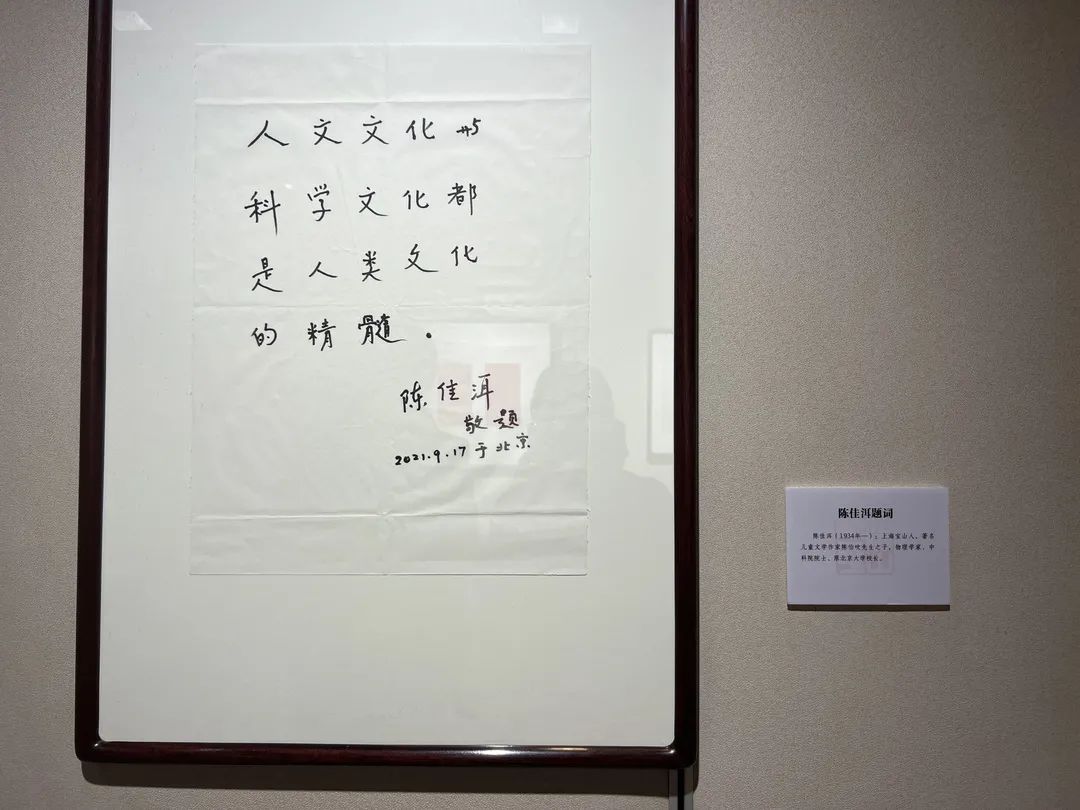 人文文化与
科学文化都
是人类文化
的精髓.
陈佳洱
敬题
2021.9.17于北京
陈佳洱题词
陈佳洱（1934年—）：上海宝山人，著名
儿童文学作家陈伯吹先生之子，物理学家，中
科院院士、原北京大学校长。